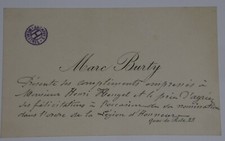 Marc Burty
Présente ses compliments empressés à
Monsieur Henri Houget et le prie d'agréer
ses félicitations à l'occasion de sa nomination
dans l'ordre de la Légion d'Honneur
Quai de